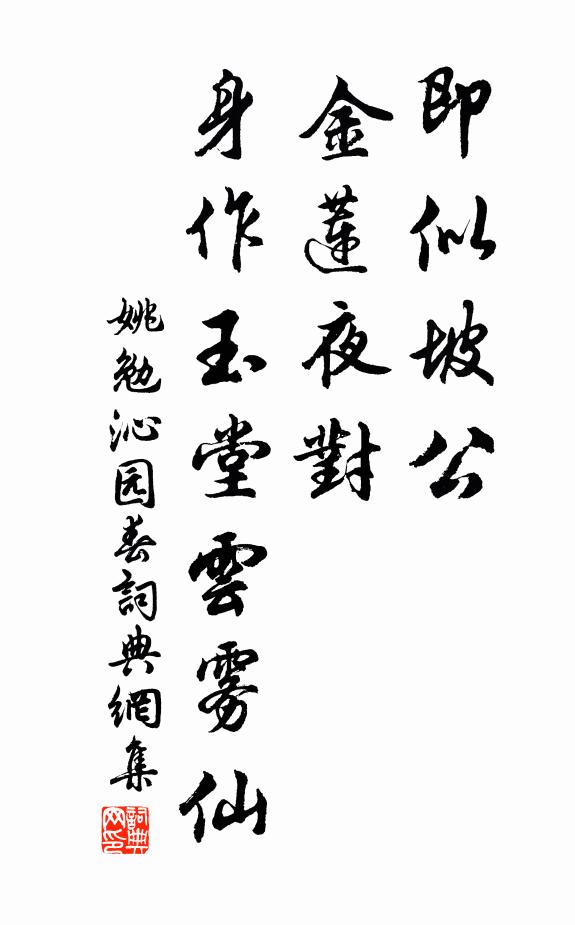 即似坡公
金蓮夜對
身作玉堂雲雾仙
姚勉沁园春詞典網集
詞典网印